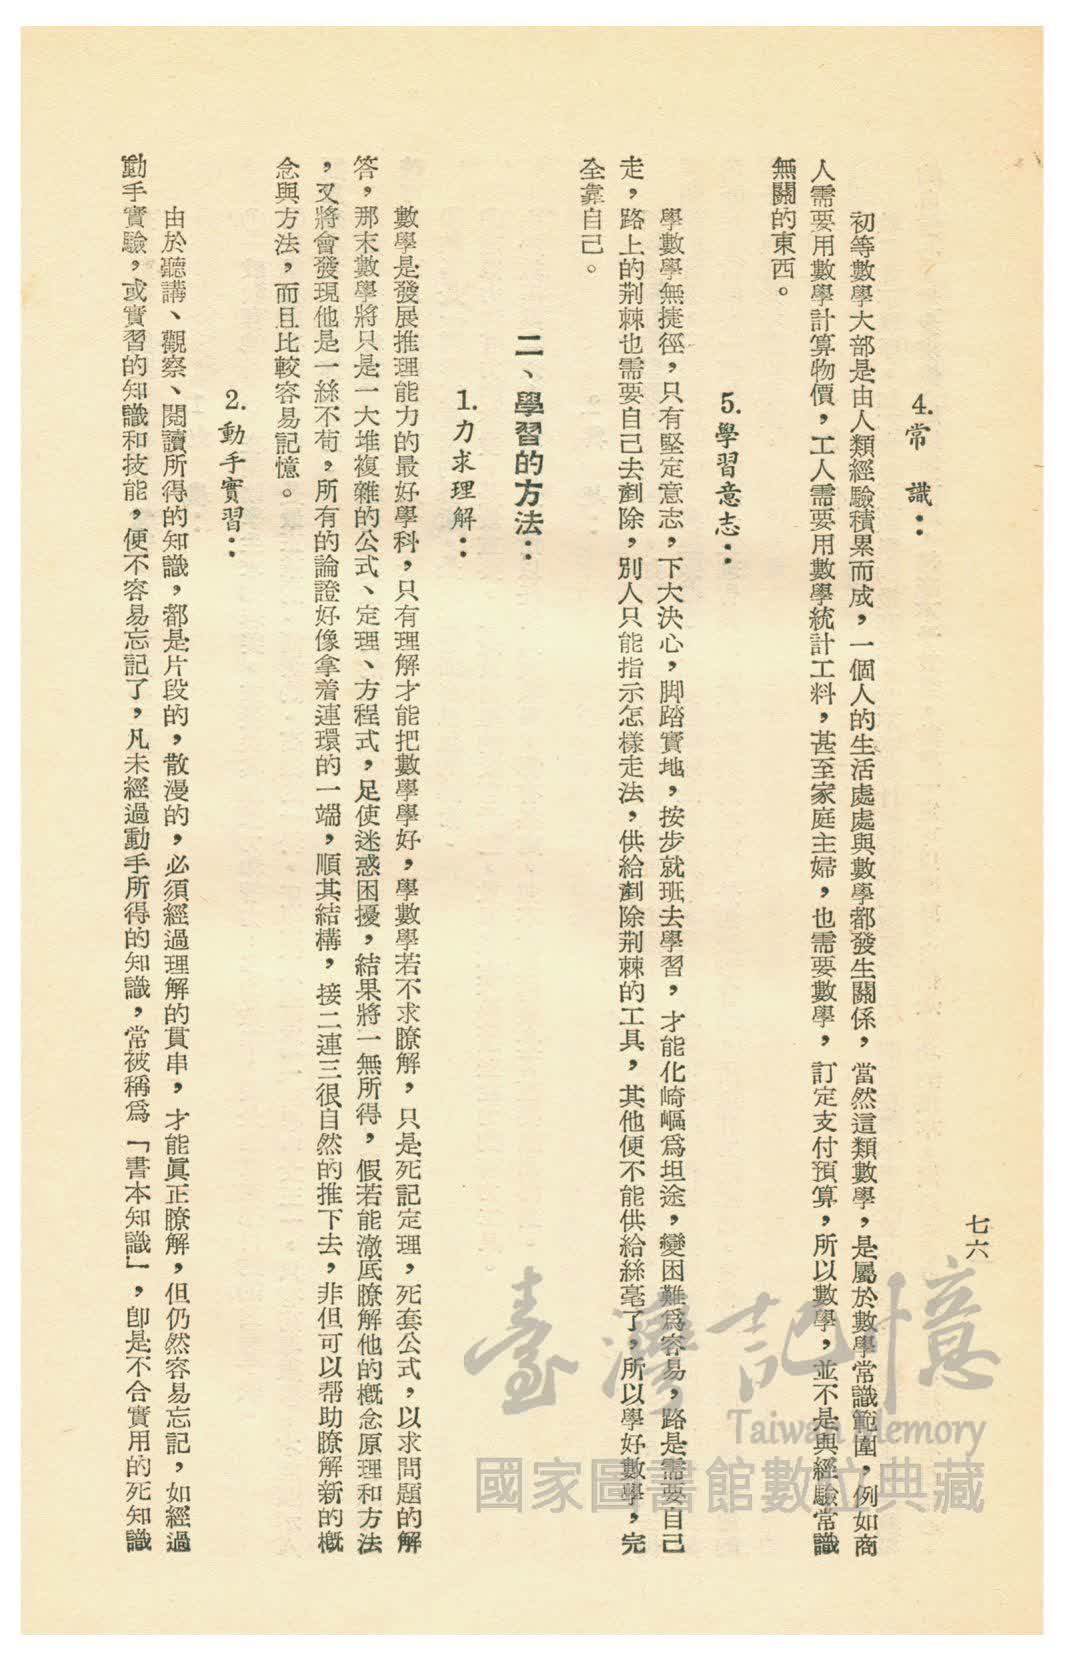 七六
4.常　識：
初等數學大部是由人類經驗積累而成，一個人的生活處處與數學都發生關係，當然這類數學，是屬於數學常識範圍，例如商
人需要用數學計算物價，工人需要用數學統計工料，甚至家庭主婦，也需要數學，訂定支付預算，所以數學，並不是與經驗常識
無關的東西。
5.學習意志：
學數學無捷徑，只有堅定意志，下大決心，脚踏實地，按步就班去學習，才能化崎嶇爲坦途，變困難爲容易，路是需要自己
走，路上的荆棘也需要自己去剷除，別人只能指示怎樣走法，供給剷除荆棘的工具，其他便不能供給絲毫了，所以學好數學，完
全靠自己。
二、學習的方法：
1.力求理解：
數學是發展推理能力的最好學科，只有理解才能把數學學好，學數學若不求瞭解，只是死記定理，死套公式，以求問題的解
答，那末數學將只是一大堆複雜的公式、定理、方程式，足使迷惑困擾，結果將一無所得，假若能澈底瞭解他的概念原理和方法
，又將會發現他是一絲不茍，所有的論證好像拿着連環的一端，順其結構，接二連三很自然的推下去，非但可以帮助瞭解新的概
念與方法，而且比較容易記憶。
2.動手實習：
由於聽講、觀察、閱讀所得的知識，都是片段的，散漫的，必須經過理解的貫串，才能眞正瞭解，但仍然容易忘記，如經過
動手實驗，或實習的知識和技能，便不容易忘記了，凡未經過動手所得的知識，常被稱爲「書本知識」，卽是不合實用的死知識
臺灣記憶
Taiwan Memory
國家圖書館數位典藏